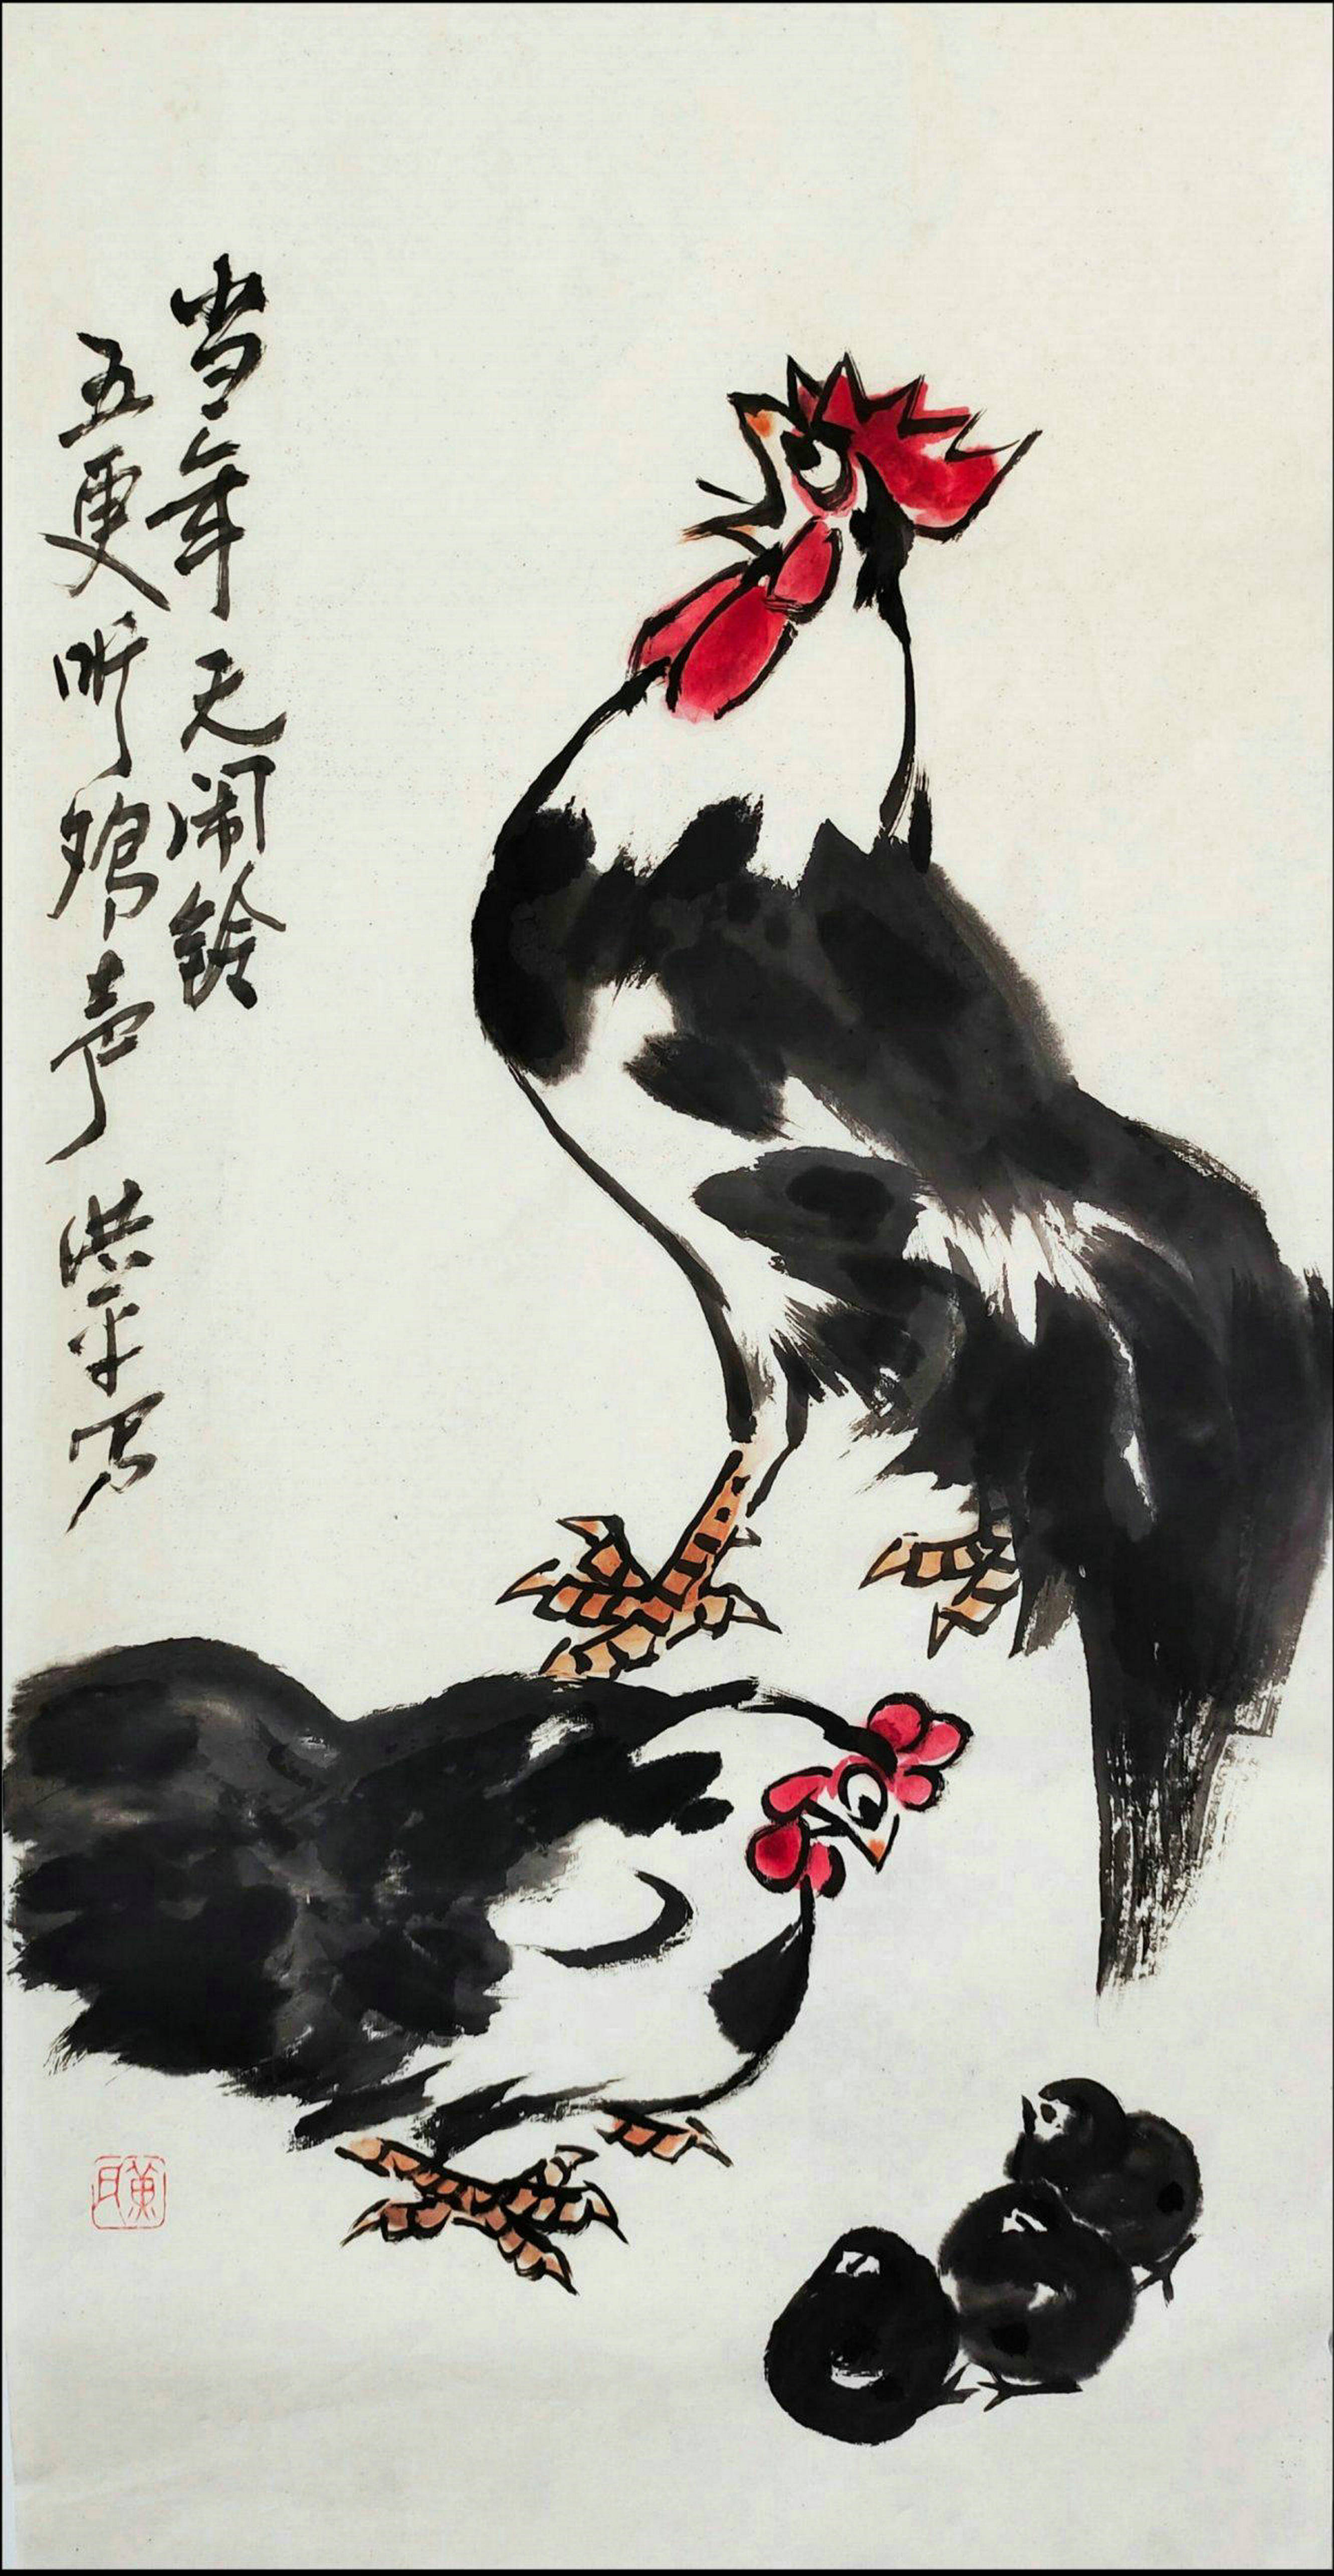 当年无闹铃
五更听鸡声
洪平写